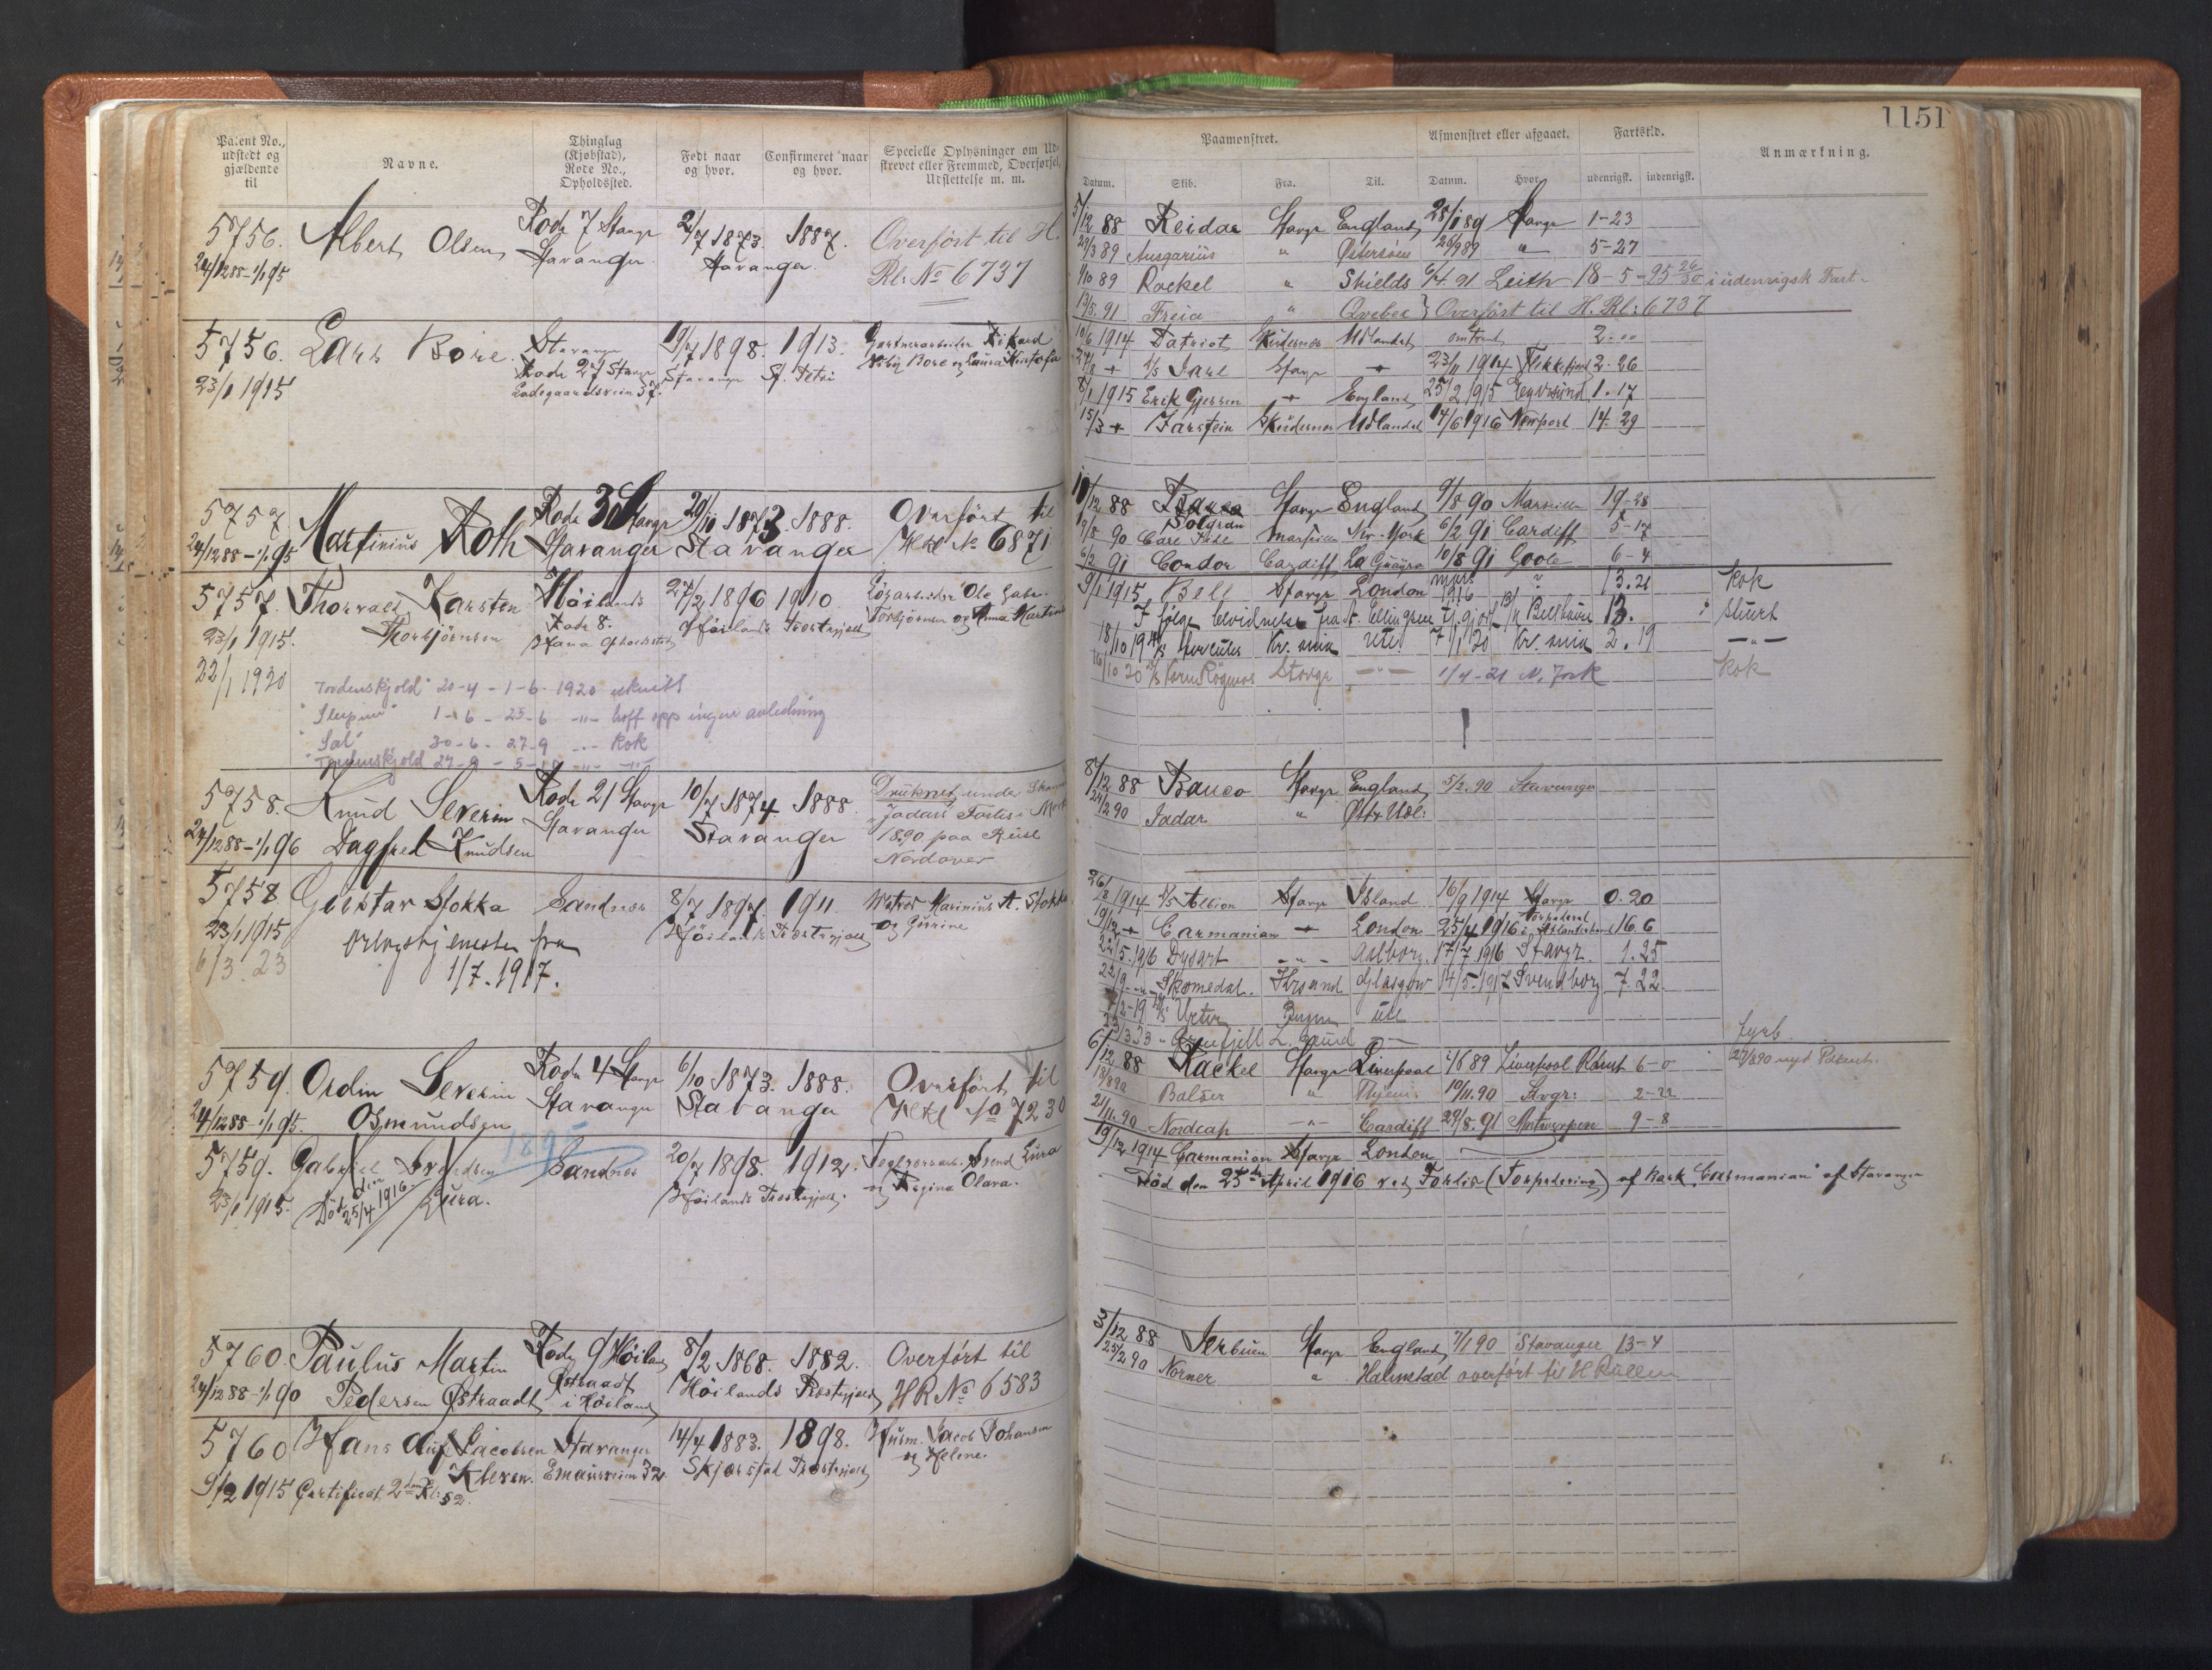 1151
Patent No., udstedt og gjældende til
Navne.
Thinglag (Kjøbstad), Rode No., Opholdssted.
Født naar og hvor.
Confirmeret naar og hvor.
Specielle Oplysninger om Udstrevet eller Fremmed, Overførsel, Udslettelse m. m.
Paamonstret.
Afmonstret eller afgaaet.
Fartstid.
Anmærkning.
Datum. Skib. Fra. Til. Datum. Hvor. udenrigsk. indenrigsk.
5756. Albert Olsen Rode 7 Stavgr 2/7 1873. 1887. Overført til H.
24/12 88 - 1/1 95 Stavanger Stavanger. Rl: No 6737
5/12 88 Reidar Stavgr England 28/1 89 Stavgr 1-23
29/3 89 Ansgarius " Østersøen 26/9 89 " 5-27
1/10 89 Rackel " Shields 6/4 91 Leith 18-5 - 95 26/30 i udenrigsk Fart
13/5. 91 Freia " Qvebec } Overført til H. Rl: 6737
5756. Lars Bore. Stavanger 19/7 1898. 1913. Gartnerarbeider Rikard
23/1 1915 Rode 27 Stavgr Stavanger St. Petri Bore og Laura
Ladegaardsveien 57.
10/6 1914 Patriot Skudesnes Udlandet omtrent 2-00
27/8 + D/S Jarl Stavgr + 23/11 1914 Flekkefjord 2-26
8/1 1915 Erik Gjessen + England 25/2 1915 Egersund 1-17
15/3 + Farstein Skudesnes Udlandet 14/6 1916 Newport 14-29
5757 Martinius Roth Rode 30 Stavgr 29/10 1873 1888. Overført til
24/12 88 - 1/1 95 Stavanger Stavanger HRl No 6871
10/12 88 Stavgr England 9/8 90 Marseille 19-28
19/8 90 Marseille Nw. York 6/2 91 Cardiff 5-17
6/2 91 Condor Cardiff La Guayra 10/8 91 Goole 6-4
5757. Thorvald Karsten Høilands 27/2 1896 1910. Ole Gabr.
23/1 1915. Thorbjörnsen Rode 8. Høilands Præstegjæld Torbjörnsen og Anna Martine
22/1 1920 Hana
9/1 1915 Bell Stavgr London mars 1916 " 13.21 Kok
I følge 13. : stuert
18/10 19 Hercules Kr. ania Utl. 7/1 20 Kr. ania 2. 19 -"-
16/10 20 Stavgr -"- 1/4-21 N. York Kok
Tordenskjold" 20-4 - 1-6- 1920
"Sleipner" 1-6 - 25-6 -"- hoff opp ingen anledning
"Sal" 30-6 - 27-9 -"- Kok
"Tordenskjold 27-9 - 5-10 -"- -"-
5758. Knud Severin Rode 21 Stavgr 10/7 1874 1888. Druknet under
24/12 88 - 1/1 96 Dagfred Knudsen Stavanger Stavanger "Jadars" Forlis i
1890 paa Reise
Nordover
8/12 88 Banco Stavgr England 5/2. 90 Stavanger
24/2 90 Jadar " Østr Udl:
5758 Gustav Stokka Sandnes 8/7 1897. 1911. Matros Marinius A. Stokka
23/1 1915 Orlogstjenesten fra Høilands Præstegjæld og Gurine
6/3. 23 1/7. 1917.
26/8 1914 D/S Albion Stavgr Island 16/9 1914 Stavgr 0.20
19/12 + Carmanian + London 25/4 1916 Torpederet i Atlanterhavet 16.6
22/5. 1916 Dysart -"- Aalborg. 17/7 1916 Stavgr. 1.25
22/9 -"- Skomedal. Krsund Glasgow 14/5. 1917 Svendborg 7.22
2-19 Bergen Utl
23/3 23 fyrb.
5759. Odin Severin Rode 4 Stavgr 6/10 1873. 1888. Overført til
24/12 88 - 1/1 95. Osmundsen Stavanger Stavanger HRl No 7230
6/12 88 Rackel Stavgr Liverpool 1/6 89 Liverpool Rømt 6-0 27/8 90 nyt Patent.
18/8 90 Balder " Tyem: 10/11. 90 Stvgr: 2-22
21/11. 90 Nordcap -"- Cardiff 29/8. 91 Antwerpen 9-8
1895
5759. Gabriel Svendsen Sandnes 20/7 1898. 1912. Svend Lura
23/1 1915. Lura. Høilands Præstegjæld. og Regina Olava.
Död den 25/4 1916.
19/12 1914 Carmanian Stavgr London
Död den 25de April 1916 ved Forlis (Torpedering) af Bark "Carmanian" af Stavanger
5760 Paulus Martin Rode 9 Høiland 8/2 1868. 1882. Overført til
24/12 88 - 1/1 90 Pedersen Østraadt Østraadt i Høiland Høilands Præstegjæld HR No 6583
3/12 88 Stavgr England 7/1 90 Stavanger 13-4
25/2 90 Norner " Halmstad overført til H Rullen
5760 Hans Aug. Jacobsen Stavanger 14/4 1883. 1898. Husm. Jacob Johansen
9/2 1915 Kleven. Emausveien 32. Skjærstad Præstegjæld og Helene.
Certificat 2den Rl: 52.